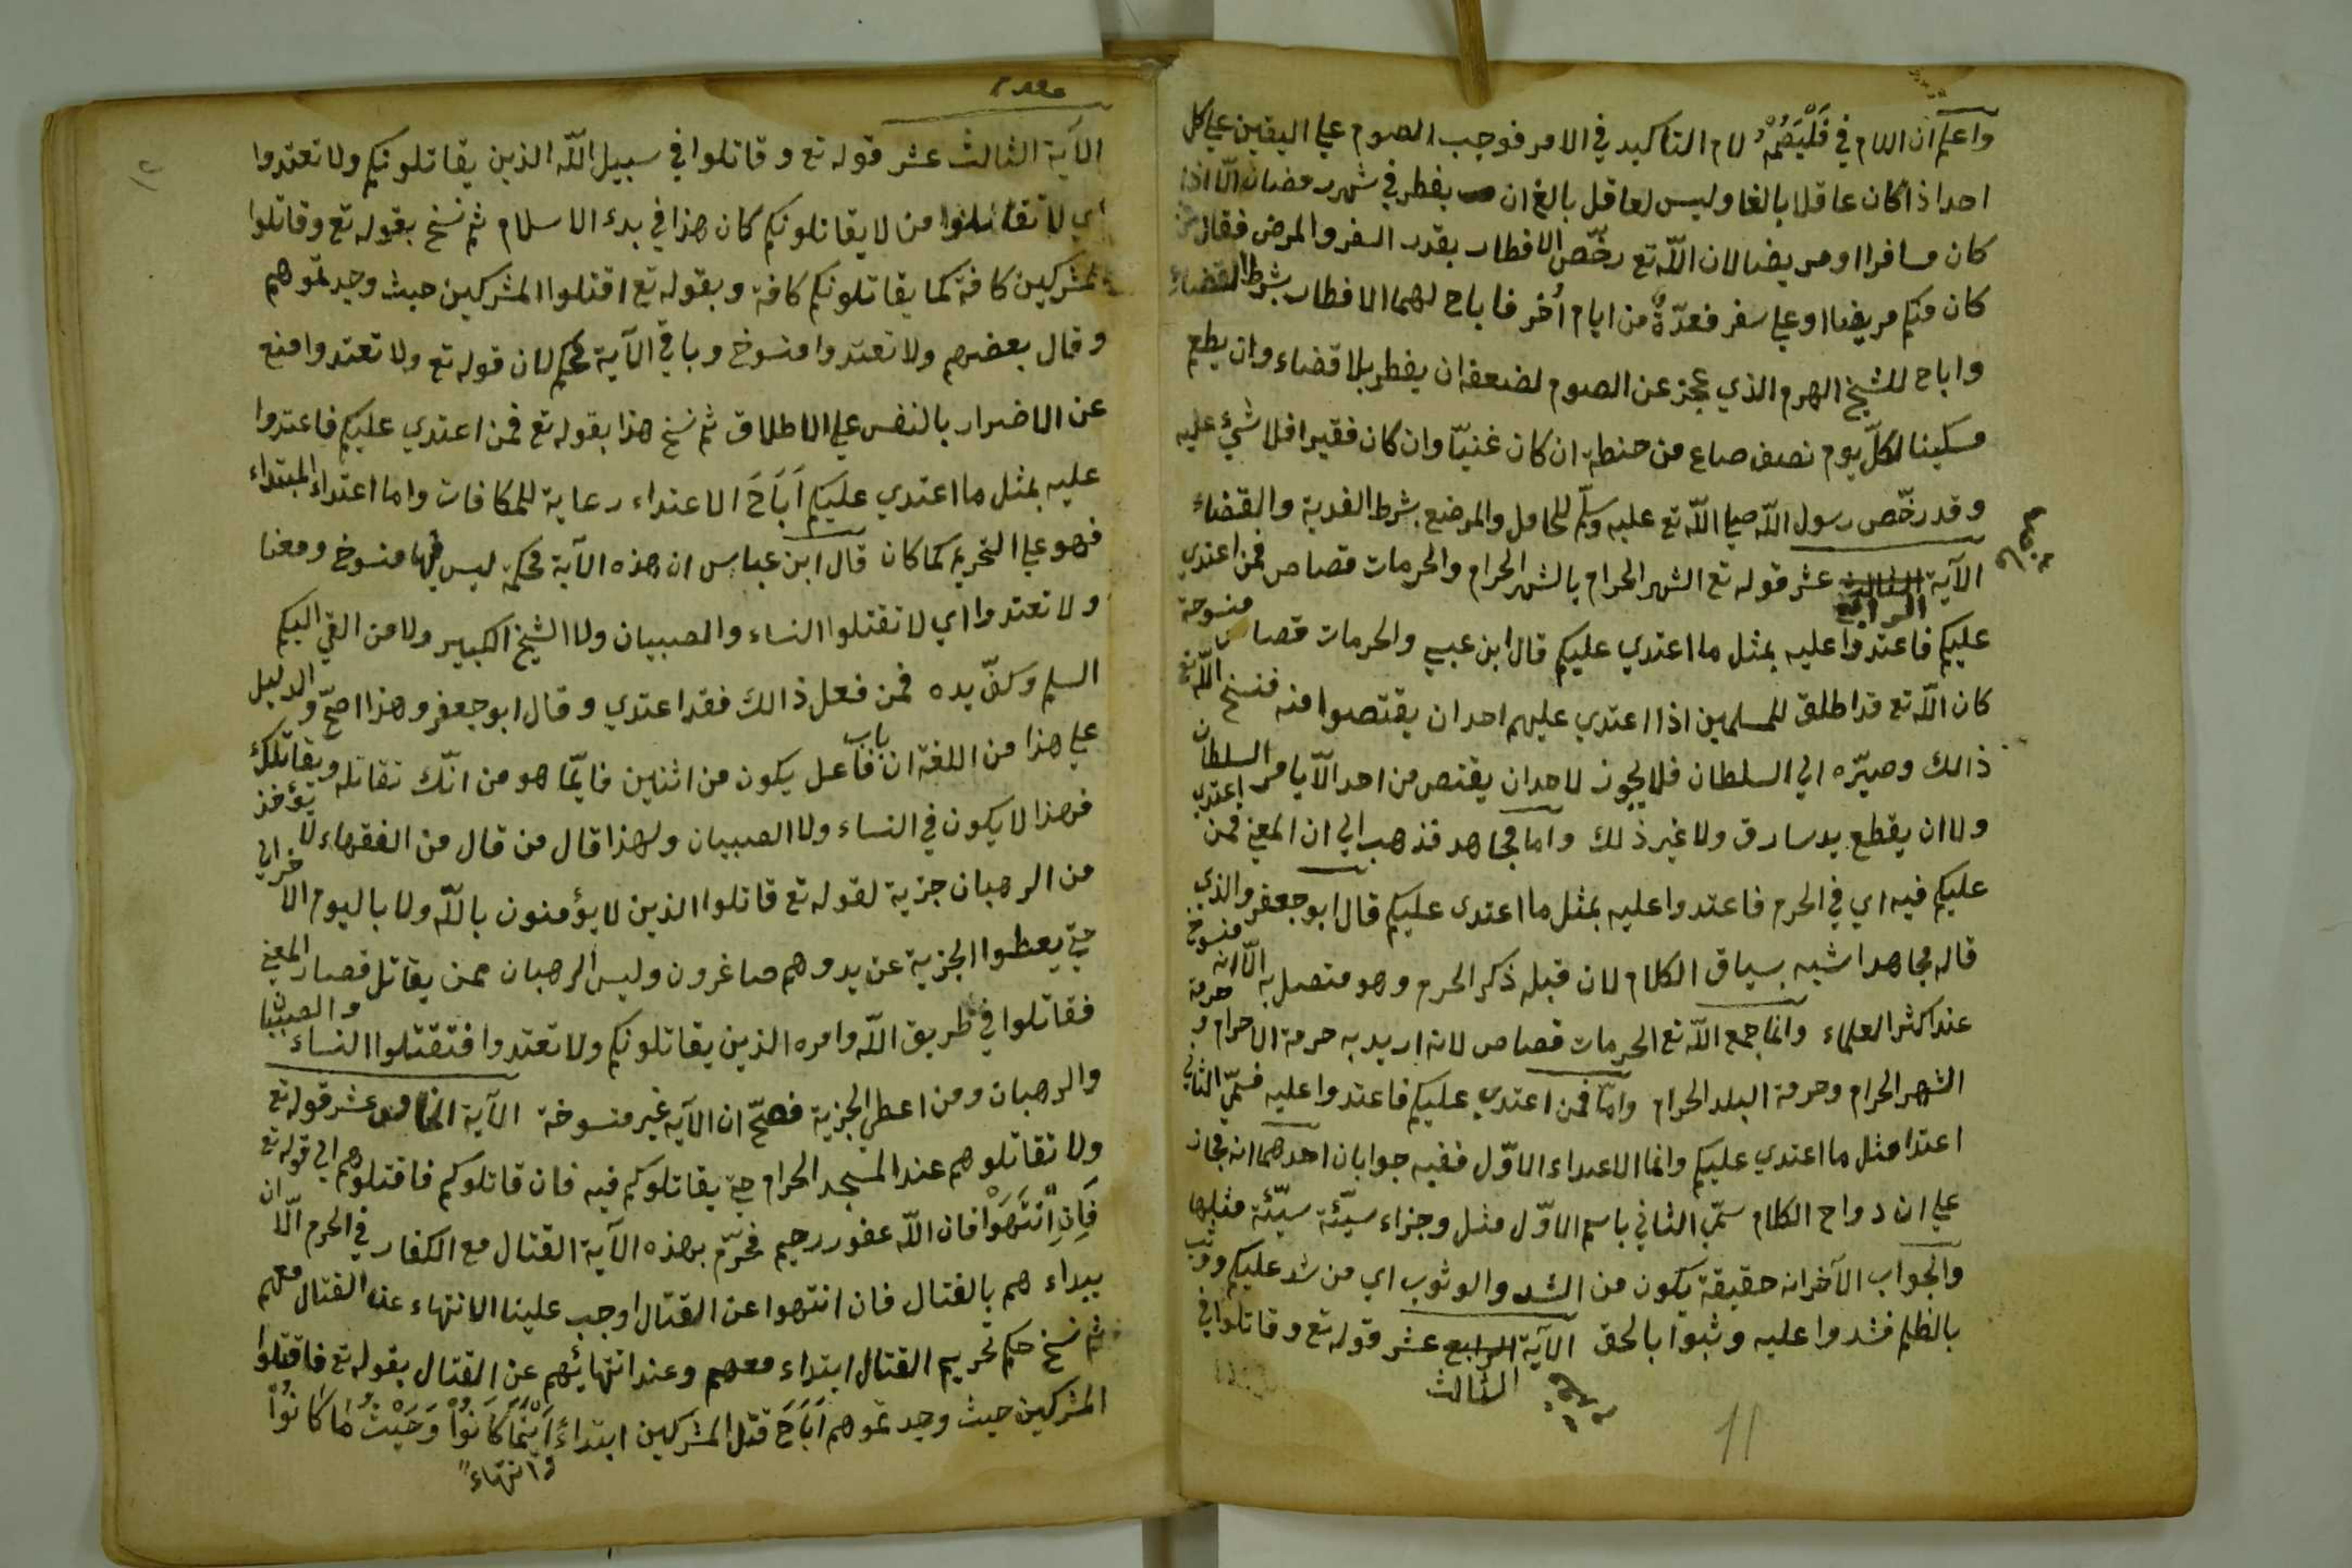 واعلم ان اللام في فَلْيَصُمْهُ لام التاكيد في الامر فوجب الصوم علي اليقين علي كل
احد اذا كان عاقلا بالغا وليس لعاقل بالغ ان يفطر في شهر رمضان الّا اذا
كان مسافرا او مريضا لان اللّه تع رخّص الافطار بقدر السفر والمرض فقال من
كان منكم مريضا او علي سفر فعدّةٌ من ايام اُخر فاباح لهما الافطار بشرط القضاء
واباح للشيخ الهرم الذي عجز عن الصوم لضعفه ان يفطر بلا قضاء وان يطعم
مسكينا لكلّ يوم نصف صاع من حنطة ان كان غنيّا وان كان فقيرا فلا شيء عليه
وقد رخّص رسول اللّه صلي اللّه تع عليه وسلّم للحامل والمرضع بشرط الفدية والقضاء
الآية الثالث عشر قوله تع الشهر الحرام بالشهر الحرام والحرمات قصاص فمن اعتدي
الرابع
عليكم فاعتدوا عليه بمثل ما اعتدي عليكم قال ابن عبس والحرمات قصاص منسوخة
كان اللّه تع قد اطلق للمسلمين اذا اعتدي عليهم احد ان يقتصوا منه فنسخ اللّه تع
ذالك وصيّره الي السلطان فلا يجوز لاحد ان يقتص من احد الّا بامر السلطان
ولا ان يقطع يد سارق ولا غير ذلك واما مجاهد فذهب الي ان المعني فمن اعتدي
عليكم فيه اي في الحرم فاعتدوا عليه بمثل ما اعتدى عليكم قال ابو جعفر والذي
قاله مجاهد اشبه بسياق الكلام لان قبله ذكر الحرم وهو متصل به الّا انه منسوخ
عند اكثر العلماء وانما جمع اللّه تع الحرمات قصاص لانه اريد به حرمة الاحرام و حرمة
الشهر الحرام وحرمة البلد الحرام وامّا فمن اعتدي عليكم فاعتدوا عليه فسمّي الثاني
اعتدا مثل ما اعتدي عليكم وانما الاعتداء الاوّل ففيه جوابان احدهما انه مجاز
علي ازدواج الكلام سمّي الثاني باسم الاوّل مثل وجزاء سيّئة سيّئة مثلها
والجواب الآخر انه حقيقة يكون من الشد والوثوب اي من شد عليكم ووثب
بالظلم فشدوا عليه وثبوا بالحق الآية الرابع عشر قوله تع وقاتلوا في
الثالث
11
١٢
الآية الثالث عشر قوله تع وقاتلوا في سبيل اللّه الذين يقاتلونكم ولا تعتدوا
اي لا تقاتلوا من لا يقاتلونكم كان هذا في بدء الاسلام ثم نسخ بقوله تع وقاتلوا
المشركين كافة كما يقاتلونكم كافة وبقوله تع اقتلوا المشركين حيث وجدتموهم
وقال بعضهم ولا تعتدوا منسوخ وباقي الآية محكم لان قوله تع ولا تعتدوا منع
عن الاضرار بالنفس علي الاطلاق ثم نسخ هذا بقوله تع فمن اعتدي عليكم فاعتدوا
عليه بمثل ما اعتدي عليكم اَبَاحَ الاعتداء رعاية للمكافات واما اعتداء المبتداء
فهو علي التحريم كما كان قال ابن عباس ان هذه الآية محكمة ليس فيها منسوخ ومعنا
ولا تعتدوا اي لا تقتلوا النساء والصبيان ولا الشيخ الكبير ولا من القي اليكم
السلم وكفّ يده فمن فعل ذالك فقد اعتدي وقال ابو جعفر وهذا اصحّ والدليل
علي هذا من اللغة ان باب فاعل يكون من اثنين فانّما هو من انّك تقاتله ويقاتلك
فهذا لا يكون في النساء ولا الصبيان ولهذا قال من قال من الفقهاء لا تؤخذ
من الرهبان جزية لقوله تع قاتلوا الذين لا يؤمنون باللّه ولا باليوم الاخر الي
حتي يعطوا الجزية عن يد وهم صاغرون وليس الرهبان ممن يقاتل فصار المعني
فقاتلوا في طريق اللّه وامره الذين يقاتلونكم ولا تعتدوا فتقتلوا النساء والصبيان
والرهبان ومن اعطي الجزية فصحّ ان الآية غير منسوخة الآية الخامس عشر قوله تع
ولا تقاتلوهم عند المسجد الحرام حتي يقاتلوكم فيه فان قاتلوكم فاقتلوهم الي قوله تع
فَاِنِ انْتَهَوْا فان اللّه غفور رحيم فحرّم بهذه الآية القتال مع الكفار في الحرم الّا ان
يبداء هم بالقتال فان انتهوا عن القتال اوجب علينا الانتهاء عن القتال معهم
ثم نسخ حكم تحريم القتال ابتداء معهم وعند انتهائهم عن القتال بقوله تع فاقتلوا
المشركين حيث وجدتموهم اَبَاحَ قتل المشركين ابتداءً اَيْنَمَا كَانُوْا وَحَيْثُ مَا كَانُوْا
وانتهاءً